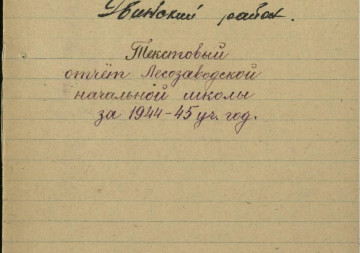 Убинский район.
Текстовый
отчёт Лесозаводской
начальной школы
за 1944-45 уч. год.